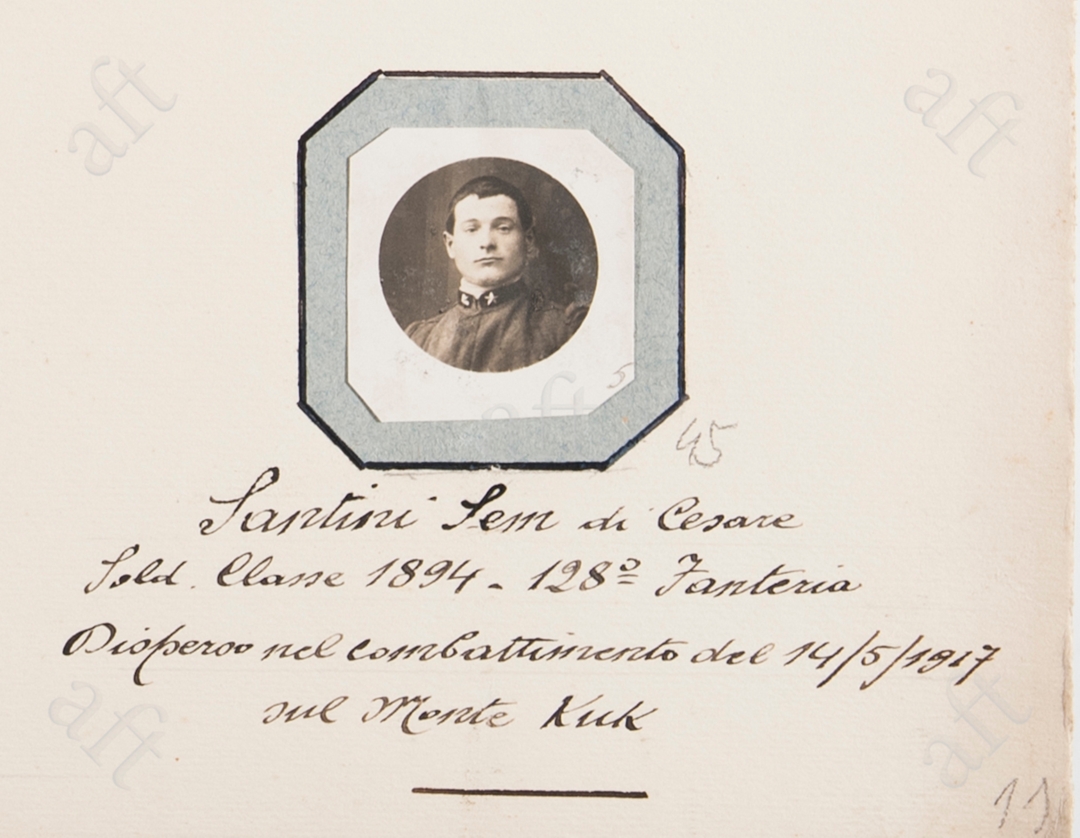 aft
aft
5
aft
45
Santini Sem di Cesare
Sold. Classe 1894 - 128º Fanteria
Disperso nel combattimento del 14/5/1917
sul Monte Kuk
aft
aft
11